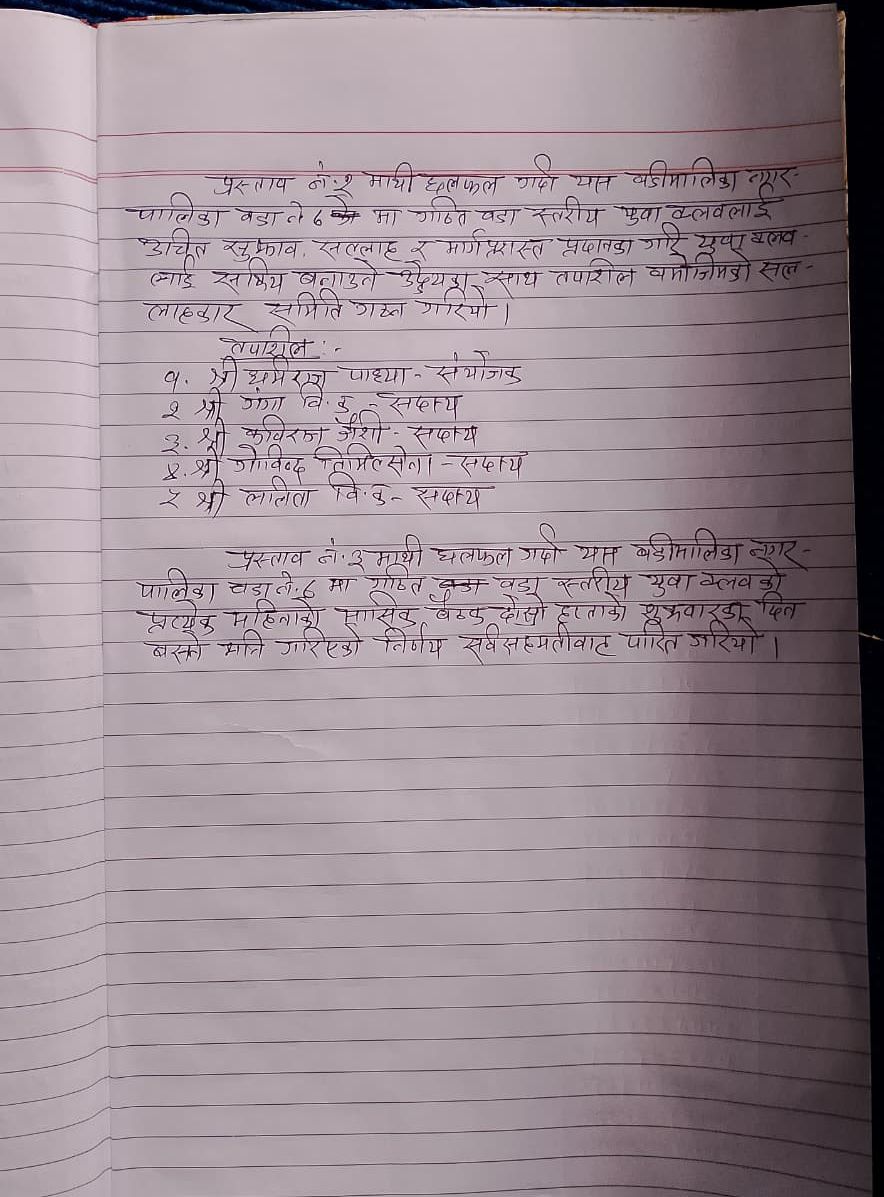 प्रस्ताव नं. २ माथी छलफल गर्दा यस बडीमालिका नगर-
पालिका वडा नं ८ मा गठित वडा स्तरीय युवा क्लवलाई
उचित सुझाव, सल्लाह र मार्गप्रशस्त प्रदानका गरि युवा क्लव-
लाई सक्रिय बनाउने उद्देश्यका साथ तपाशिल बमोजिमको सल-
लाहकार समिति गठन गरियो ।
तपाशिल :-
१. श्री धर्मराज पाध्या - संयोजक
२ श्री गंगा वि. क - सदस्य
३. श्री कविराज जैशी - सदस्य
४. श्री गोविन्द तिमिल्सेना - सदस्य
५ श्री ललिता वि. क - सदस्य
प्रस्ताव नं. ३ माथी छलफल गर्दा यस बडीमालिका नगर-
पालिका वडा नं. ८ मा गठित वडा स्तरीय युवा क्लव को
प्रत्येक महिनाको मासिक बैठक दोस्रो हप्ताको शुक्रवारका दिन
बस्ने भनि गरिएको निर्णय सर्वसहमतीवाट पारित गरियो ।